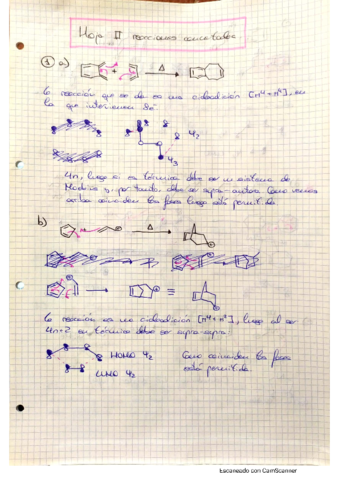 Hoja II reacciones concertadas.
① a)
+ Δ
La reacción que se da es una cicloadición [π⁴+π⁴], en
la que intervienen 8e⁻
Ψ₂
Ψ₃
4n, luego si es térmica debe ser un sistema de
Modius y, por tanto, debe ser supra-antara. Como vemos
coinciden las fases luego está permitida
b)
Δ
≡
La reacción es una cicloadición [π⁴+π²], luego al ser
4n+2 en térmica debe ser supra-supra.
HOMO Ψ₂
LUMO Ψ₂
Como coinciden las fases
está permitida.
Escaneado con CamScanner